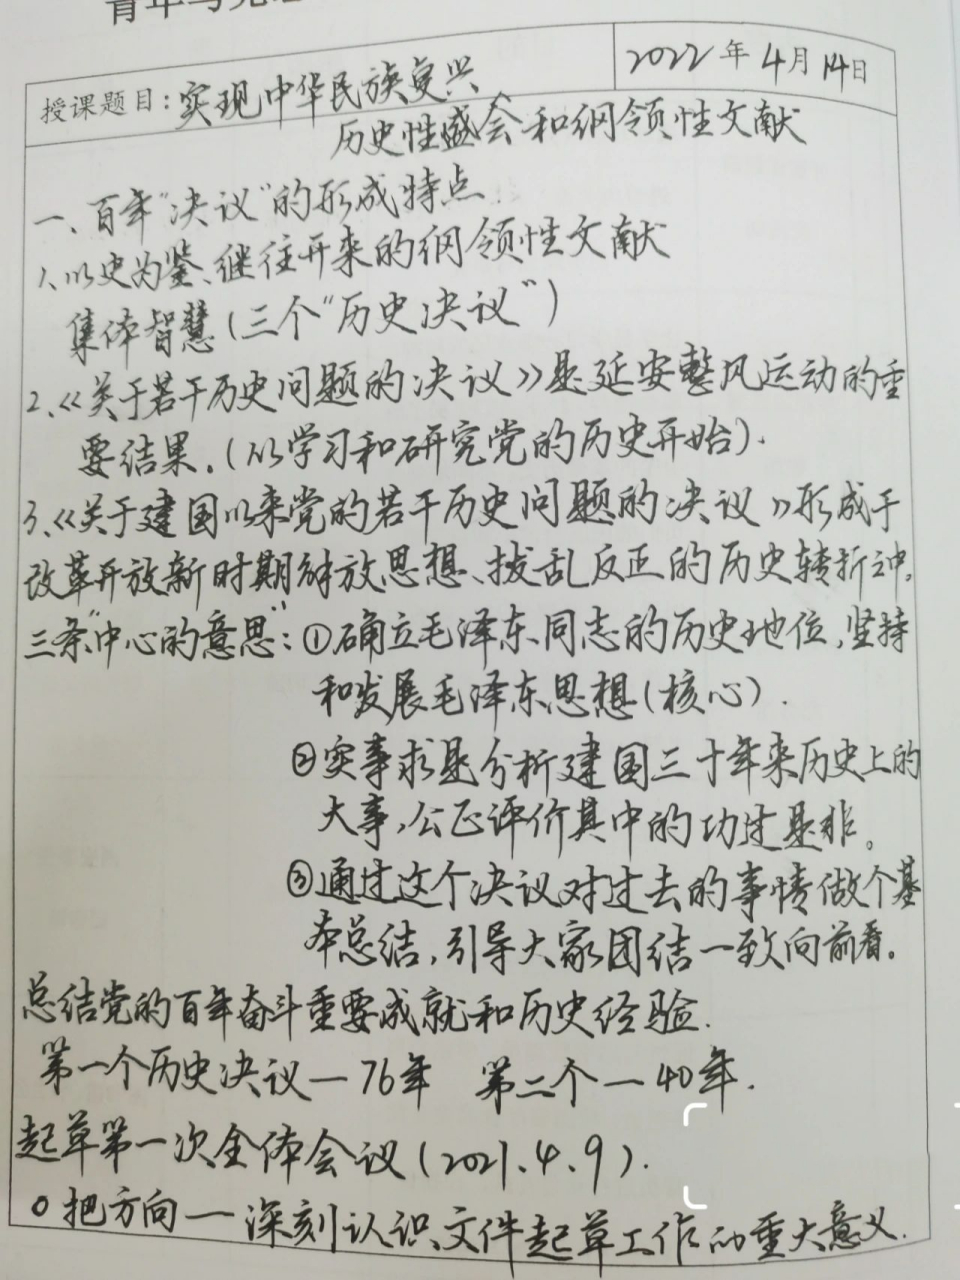 2022年4月14日
授课题目：实现中华民族复兴
历史性盛会和纲领性文献
一、百年“决议”的形成特点
1、以史为鉴、继往开来的纲领性文献
集体智慧(三个“历史决议”)
2、《关于若干历史问题的决议》是延安整风运动的重
要结果。(以学习和研究党的历史开始).
3、《关于建国以来党的若干历史问题的决议》形成于
改革开放新时期解放思想、拨乱反正的历史转折之中,
三条“中心的意思”：①确立毛泽东同志的历史地位,坚持
和发展毛泽东思想(核心).
②实事求是分析建国三十年来历史上的
大事,公正评价其中的功过是非。
③通过这个决议对过去的事情做个基
本总结,引导大家团结一致向前看。
总结党的百年奋斗重要成就和历史经验.
第一个历史决议—76年 第二个—40年.
起草第一次全体会议(2021.4.9).
○把方向—深刻认识文件起草工作的重大意义.